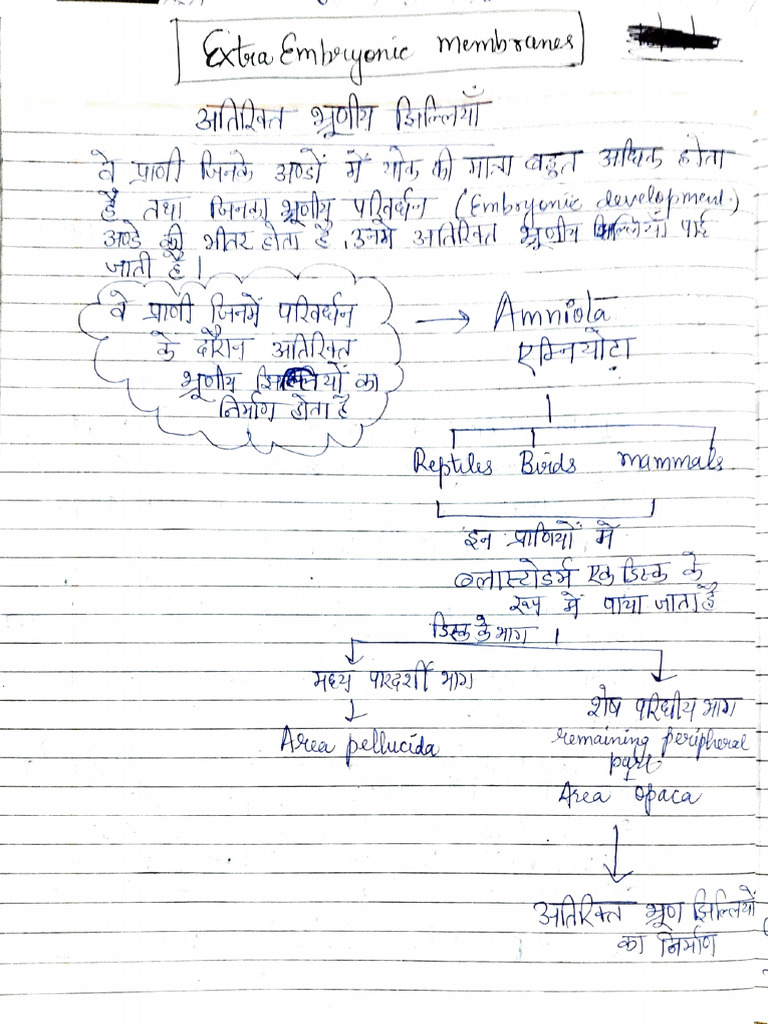 Extra Embryonic membranes
अतिरिक्त भ्रूणीय झिल्लियाँ
वे प्राणी जिनके अण्डों में योक की मात्रा बहुत अधिक होता
है तथा जिनका भ्रूणीय परिवर्धन (Embryonic development)
अण्डे की भीतर होता है, उनमे अतिरिक्त भ्रूणीय झिल्लियाँ पाई
जाती है।
वे प्राणी जिनमें परिवर्धन
के दौरान अतिरिक्त
भ्रूणीय झिल्लियों का
निर्माण होता है
→ Amniota
एम्नियोटा
Reptiles Birds mammals
इन प्राणियों में
ब्लास्टोडर्म एक डिस्क के
रूप में पाया जाता है
डिस्क के भाग ।
मध्य पारदर्शी भाग
Area pellucida
शेष परिधीय भाग
remaining peripheral
part
Area opaca
अतिरिक्त भ्रूण झिल्लियों
का निर्माण